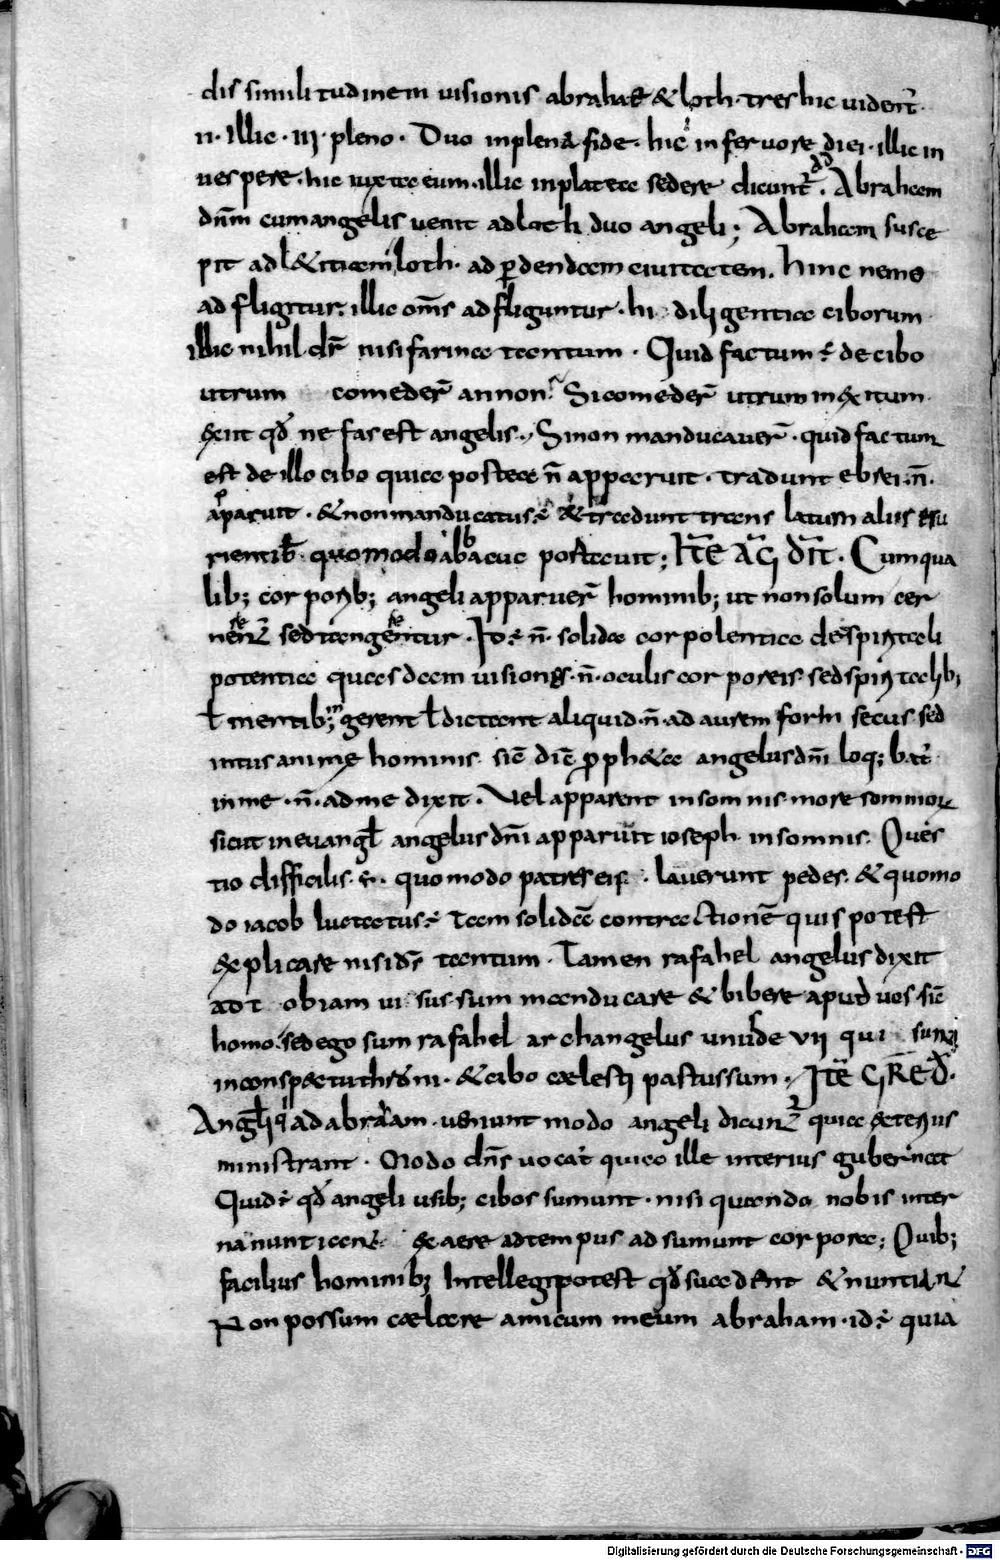 dis similitudinem visionis abrahae & loth· tres hic uident̄
n· illic· iii· pleno· Duo inplena fide· hic in feruore diei· illic in
uespere· hic iuxta eum· illic in platea sedere dicunt̄· Abraham
dn̄m cum angelis uenit ad loth duo angeli; Abraham susce
pit ad l&itiam loth· ad ꝑdendam ciuitatem. hinc nemo
adfligitur· illic om̄s adfliguntur· hi diligentia ciborum
illic nihil dr̄ nisi farina tantum· Quid factum ÷ de cibo
utrum comeder̄ an non· Si comeder̄ utrum in exitum
exiit qđ nefas est angelis· Si non manducauer̄· quid factum
est de illo cibo quia postea n̄ apparuit· tradunt ebrei· n̄·
apparuit· & non manducatus ÷ & tradunt trans latum aliis esu
rientib̄ quomodo abbacuc portauit; Ite aḡ dīt· Cum qua
lib; corporib; angeli apparuer̄ hominib; ut non solum cer
nerent̄ sed tangerentur· Id ÷ n̄· solida corpolentia de spiritali
potentia quasdam visiones· n̄· oculis corporeis sed spiritalib;
ł mentib; ingerent ł dicant aliquid· n̄· ad aurem forin secus sed
intus anime hominis sic̄ dic̄ ꝓph&a angelus dn̄i loq; bat̄
in me· n̄· ad me dixit· Vel apparent in somnis more somniorum
sicut in euangł angelus dn̄i apparuit ioseph in somnis· Ques
tio difficilis ÷· quomodo patres eis· lauerunt pedes· & quomo
do iacob luctatus ÷ tam solida contrectionē quis potest
explicare nisi dr̄ tantum· Tamen rafahel angelus dixit
ad t obiam ui sus sum manducare & bibere apud uos sic̄
homo· sed ego sum rafahel archangelus unus de vii qui sum
in conspectu thro dn̄i· & cibo caelesti pastus sum· Itē GREḠ·
Angłi q ad abraam· ueniunt modo angeli dicunt̄ quia exterius
ministrant· Modo dn̄s uocat quia ille interius gubernat
Quid ÷ qđ angeli usib; cibos sumunt· nisi quando nobis inter
na nuntiant ex aere ad tempus adsumunt corpora; Quib;
facilius hominib; Intellegi potest qđ succedent & nuntiant
Non possum caelare amicum meum abraham· id ÷ quia
Digitalisierung gefördert durch die Deutsche Forschungsgemeinschaft - DFG